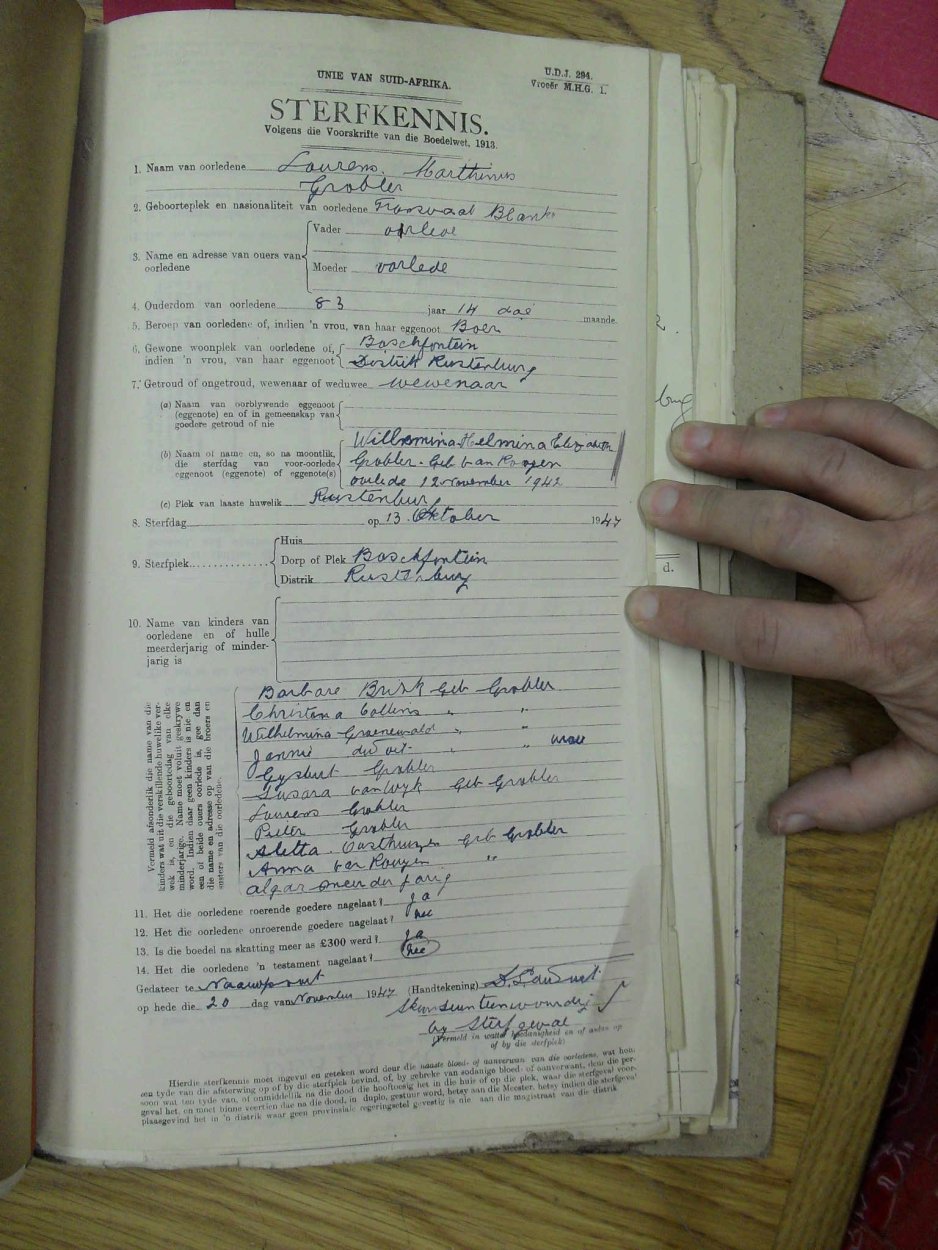 UNIE VAN SUID-AFRIKA.
U.D.J. 294.
Vroeër M.H.G. 1.
STERFKENNIS.
Volgens die Voorskrifte van die Boedelwet, 1913.
1. Naam van oorledene Lourens Marthinus
Grobler
2. Geboorteplek en nasionaliteit van oorledene Transvaal Blank
3. Name en adresse van ouers van oorledene
Vader oorlede
Moeder oorlede
4. Ouderdom van oorledene 83 jaar 14 dae maande
5. Beroep van oorledene of, indien 'n vrou, van haar eggenoot Boer
6. Gewone woonplek van oorledene of, indien 'n vrou, van haar eggenoot
Boschfontein
Distrik Rustenburg
7. Getroud of ongetroud, wewenaar of weduwee wewenaar
(a) Naam van oorblywende eggenoot
(eggenote) en of in gemeenskap van
goedere getroud of nie
(b) Naam of name en, so na moontlik,
die sterfdag van voor-oorlede
eggenoot (eggenote) of eggenote(s)
Wilhelmina Helmina Elizabeth
Grobler Geb van Rooyen
oorlede 12 November 1942
(c) Plek van laaste huwelik Rustenburg
8. Sterfdag op 13 Oktober 1947
9. Sterfplek
Huis
Dorp of Plek Boschfontein
Distrik Rustenburg
10. Name van kinders van
oorledene en of hulle
meerderjarig of minder-
jarig is
Vermeld afsonderlik die name van die
kinders wat uit die verskillende huwelike ver-
wek is, en die geboortedag van elke
minderjarige. Name moet voluit geskrywe
word. Indien daar geen kinders is nie en
een of beide ouers oorlede is, gee dan
die name en adresse op van die broers en
susters van die oorledene.
Barbara Brink Geb Grobler
Christina Collins " "
Wilhelmina Groenewald " "
Jannie du Toit " "
Gysbert Grobler
Susara van Wyk Geb Grobler
Lourens Grobler
Pieter Grobler
Aletta Oosthuizen Geb Grobler
Anna van Rooyen "
algar meerderjarig
11. Het die oorledene roerende goedere nagelaat? Ja
12. Het die oorledene onroerende goedere nagelaat? nee
13. Is die boedel na skatting meer as £300 werd? Ja
14. Het die oorledene 'n testament nagelaat? nee
Gedateer te Naauwpoort (Handtekening)
op hede die 20 dag van November 1947
by Sterfgeval
(Vermeld in watter hoedanigheid en of anders op
of by die sterfplek)
Hierdie sterfkennis moet ingevul en geteken word deur die naaste bloed- of aanverwant van die oorledene, wat
ten tyde van die afsterwing op of by die sterfplek bevind, of, by gebreke van sodanige bloed- of aanverwant, deur die per-
soon wat ten tyde van, of onmiddellik na die dood die hooftoesig het in die huis of op die plek, waar die sterfgeval voor-
geval het, en moet binne veertien dae na die dood, in duplo, gestuur word, hetsy aan die Meester, hetsy indien die sterfgeval
plaasgevind het in 'n distrik waar geen provinsiale registrasie gevestig is nie aan die magistraat van die distrik
d.